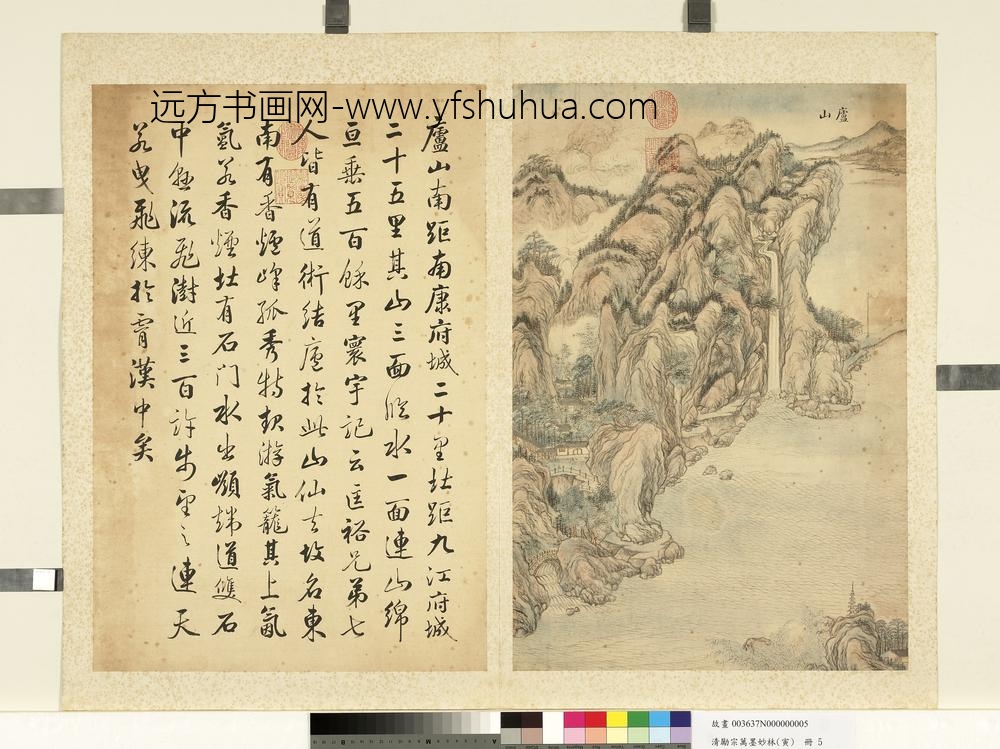 远方书画网-www.yfshuhua.com
廬山
廬山南距南康府城二十里北距九江府城
二十五里其山三面臨水一面連山綿
亘垂五百餘里寰宇記云匡裕兄弟七
人皆有道術結廬於此山仙去故名東
南有香爐峰孤秀特起游氣籠其上氤
氳若香煙北有石門水出嶺端道雙石
中懸流飛澍近三百許步望之連天
若曳飛練於霄漢中矣
故畫 003637N000000005
清勵宗萬墨妙珠林(寅) 冊 5